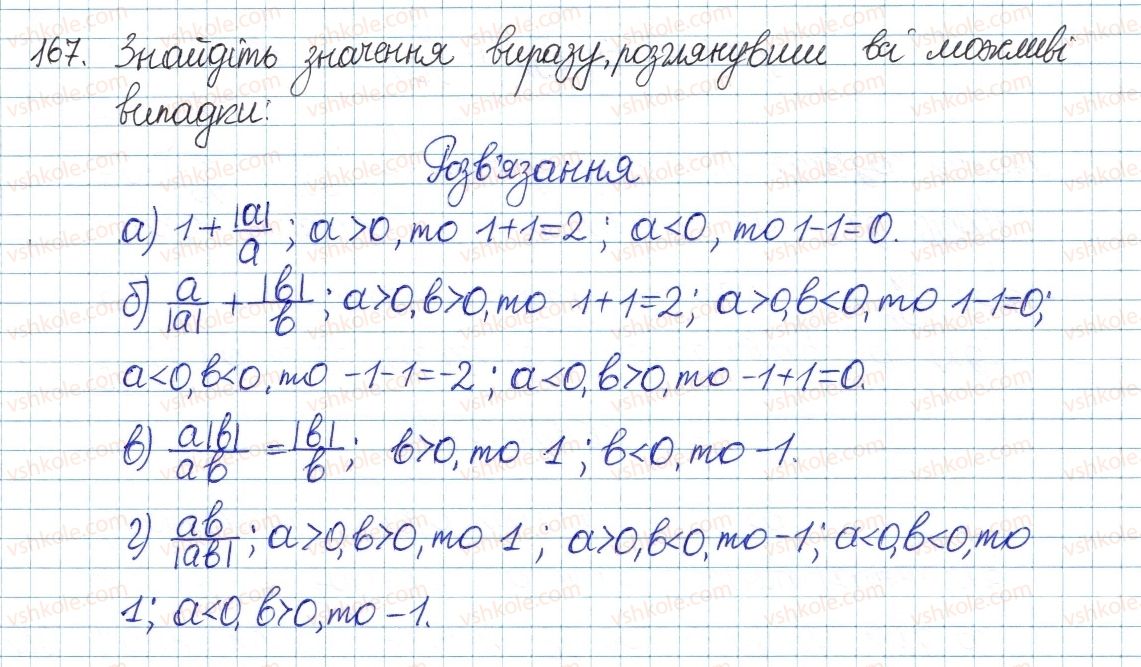 167. Знайдіть значення виразу, розглянувши всі можливі
випадки:
Розв'язання
а) 1 + |a|/a ; a > 0, то 1+1=2 ; a < 0, то 1-1=0.
б) a/|a| + |b|/b ; a>0, b>0, то 1+1=2; a>0, b<0, то 1-1=0;
a<0, b<0, то -1-1=-2 ; a<0, b>0, то -1+1=0.
в) a|b|/ab = |b|/b ; b>0, то 1 ; b<0, то -1.
г) ab/|ab| ; a>0, b>0, то 1 ; a>0, b<0, то -1; a<0, b<0, то
1; a<0, b>0, то -1.